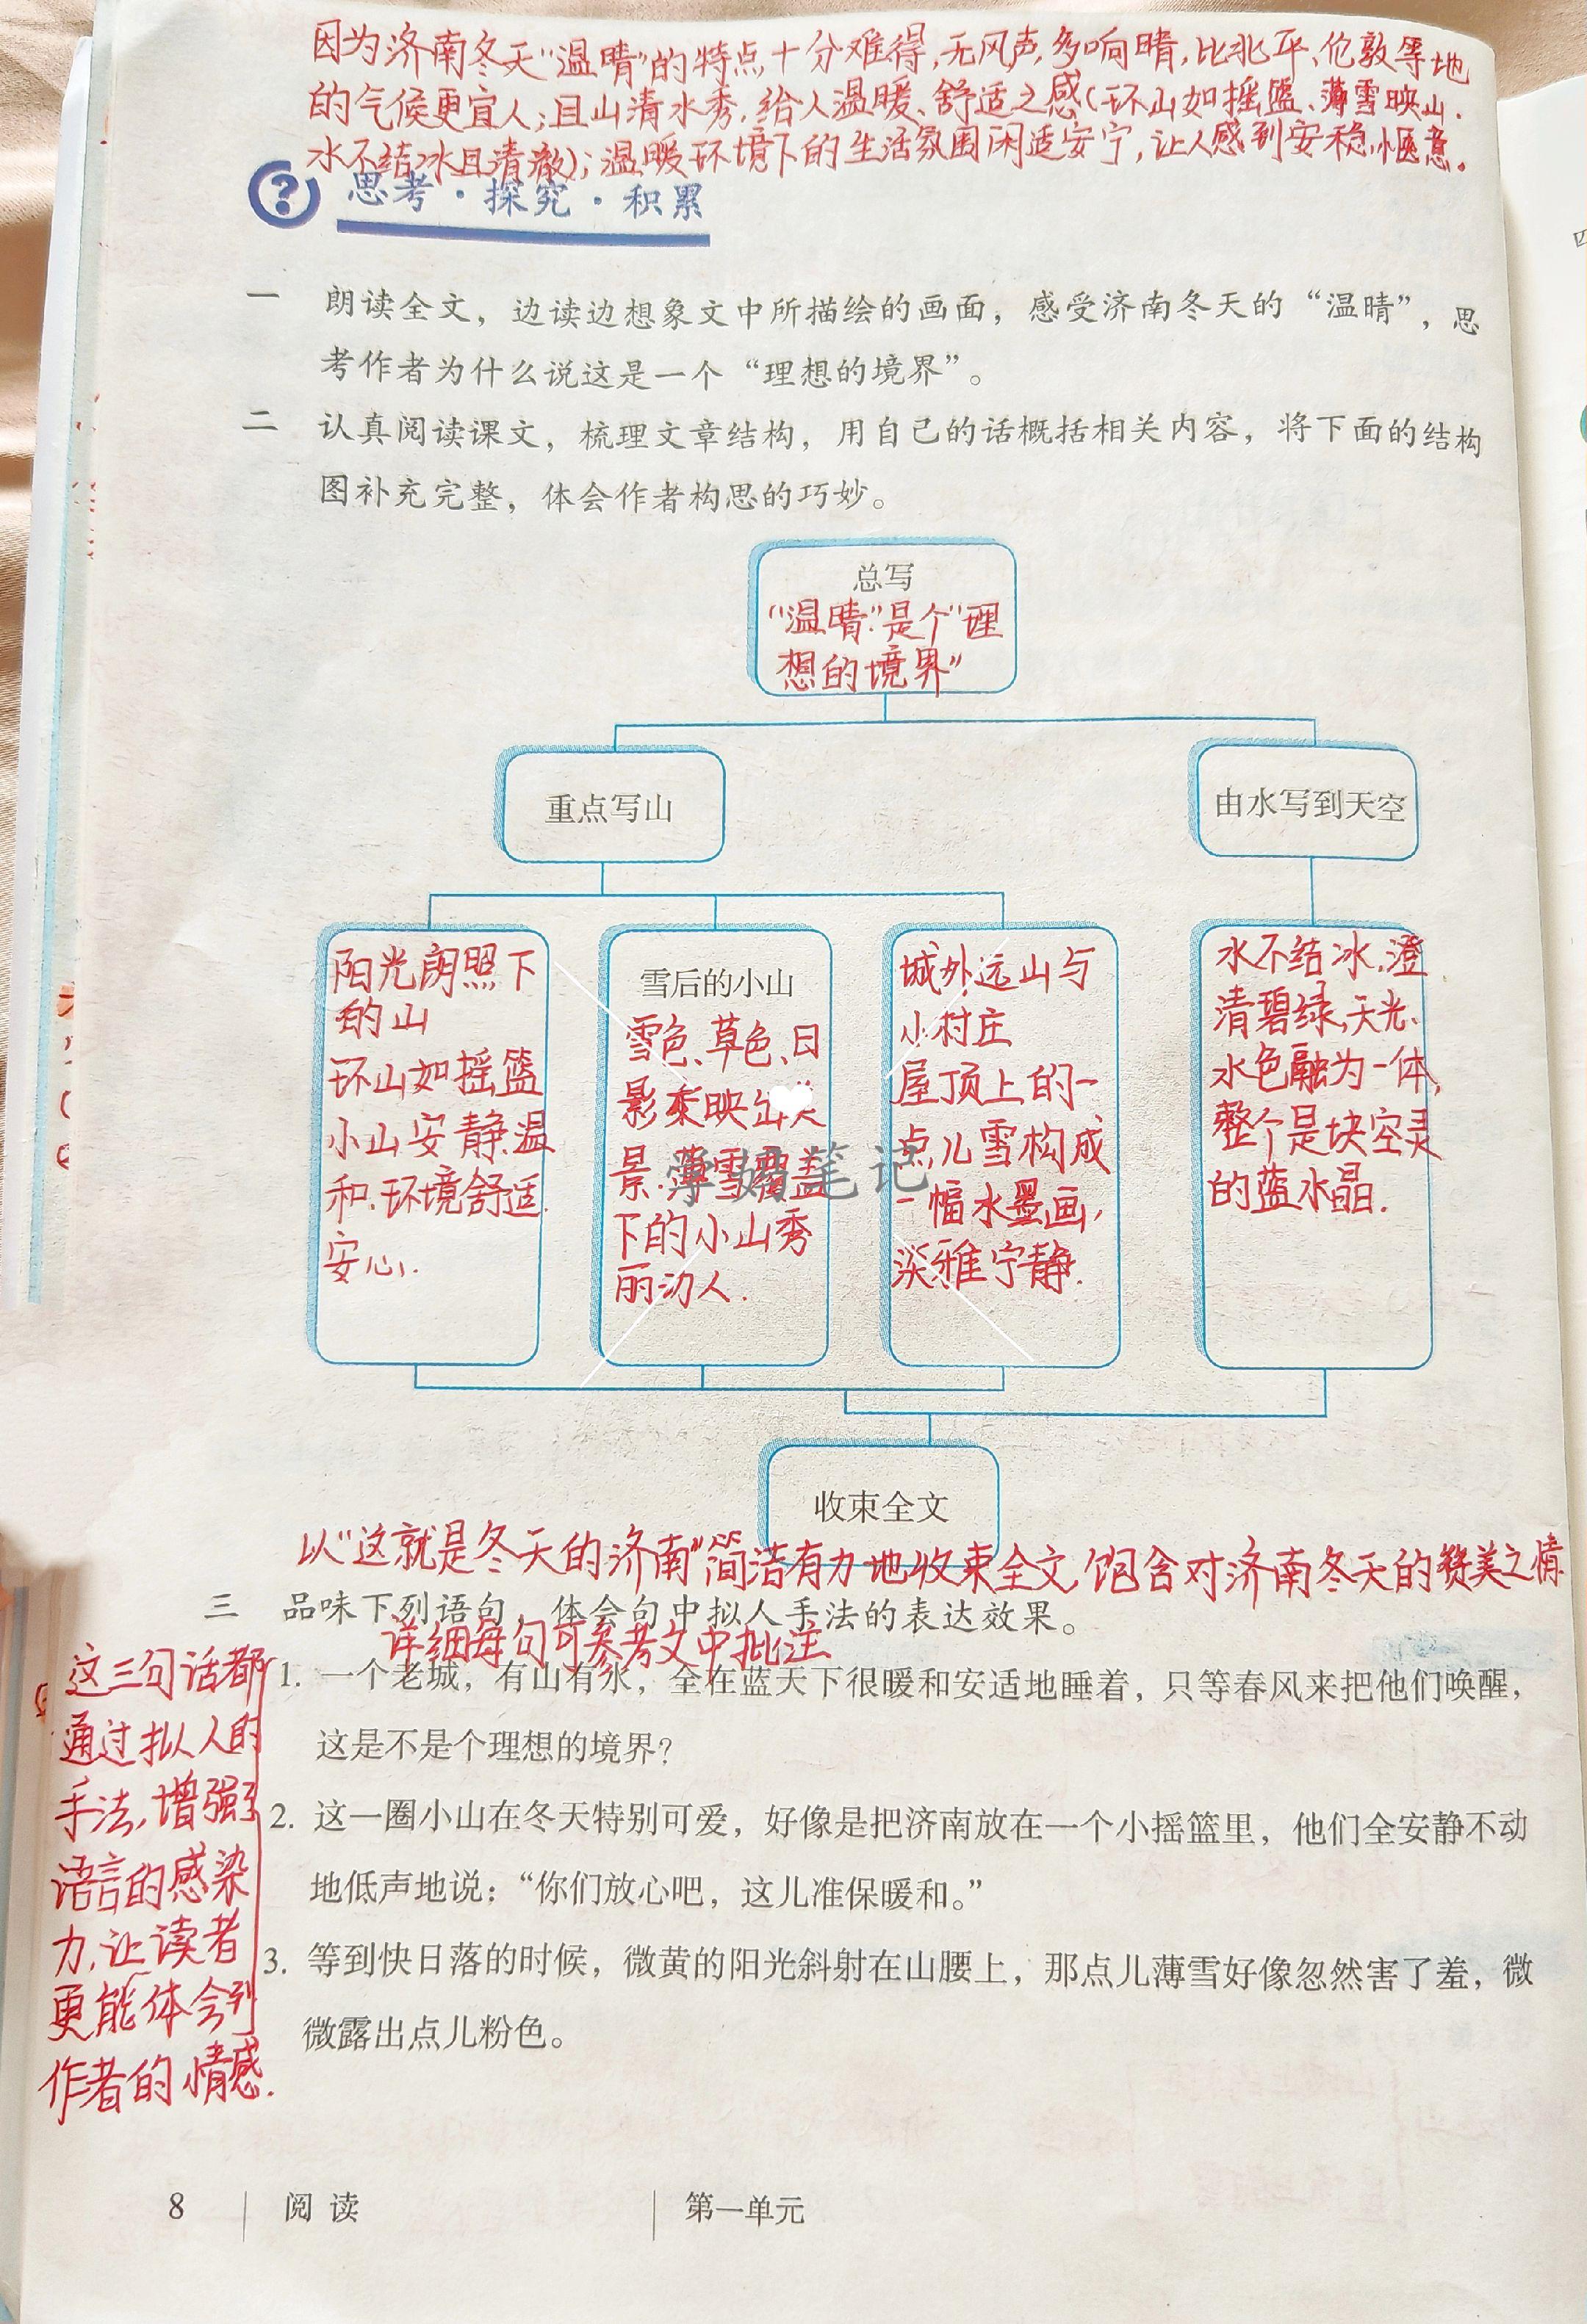 因为济南冬天“温晴”的特点十分难得,无风声,多响晴,比北平、伦敦等地
的气候更宜人;且山清水秀,给人温暖、舒适之感(环山如摇篮、薄雪映山.
水不结冰且清澈);温暖环境下的生活氛围闲适安宁,让人感到安稳,惬意。
思考·探究·积累
一 朗读全文，边读边想象文中所描绘的画面，感受济南冬天的“温晴”，思
考作者为什么说这是一个“理想的境界”。
二 认真阅读课文，梳理文章结构，用自己的话概括相关内容，将下面的结构
图补充完整，体会作者构思的巧妙。
总写
“温晴”是个“理
想的境界”
重点写山
由水写到天空
阳光朗照下
的山
环山如摇篮
小山安静.温
和.环境舒适.
安心.
雪后的小山
雪色、草色、日
影
映出
景.薄雪覆盖
下的小山秀
丽动人.
城外远山与
小村庄
屋顶上的一
点儿雪构成
一幅水墨画,
淡雅宁静.
水不结冰,澄
清碧绿,天光、
水色融为一体,
整个是块空灵
的蓝水晶.
学姐笔记
收束全文
以“这就是冬天的济南”简洁有力地收束全文,饱含对济南冬天的赞美之情.
三 品味下列语句，体会句中拟人手法的表达效果。
详细每句可参考文中批注
1. 一个老城，有山有水，全在蓝天下很暖和安适地睡着，只等春风来把他们唤醒，
这是不是个理想的境界？
2. 这一圈小山在冬天特别可爱，好像是把济南放在一个小摇篮里，他们全安静不动
地低声地说：“你们放心吧，这儿准保暖和。”
3. 等到快日落的时候，微黄的阳光斜射在山腰上，那点儿薄雪好像忽然害了羞，微
微露出点儿粉色。
这三句话都
通过拟人的
手法,增强了
语言的感染
力,让读者
更能体会到
作者的情感.
8 阅读 第一单元